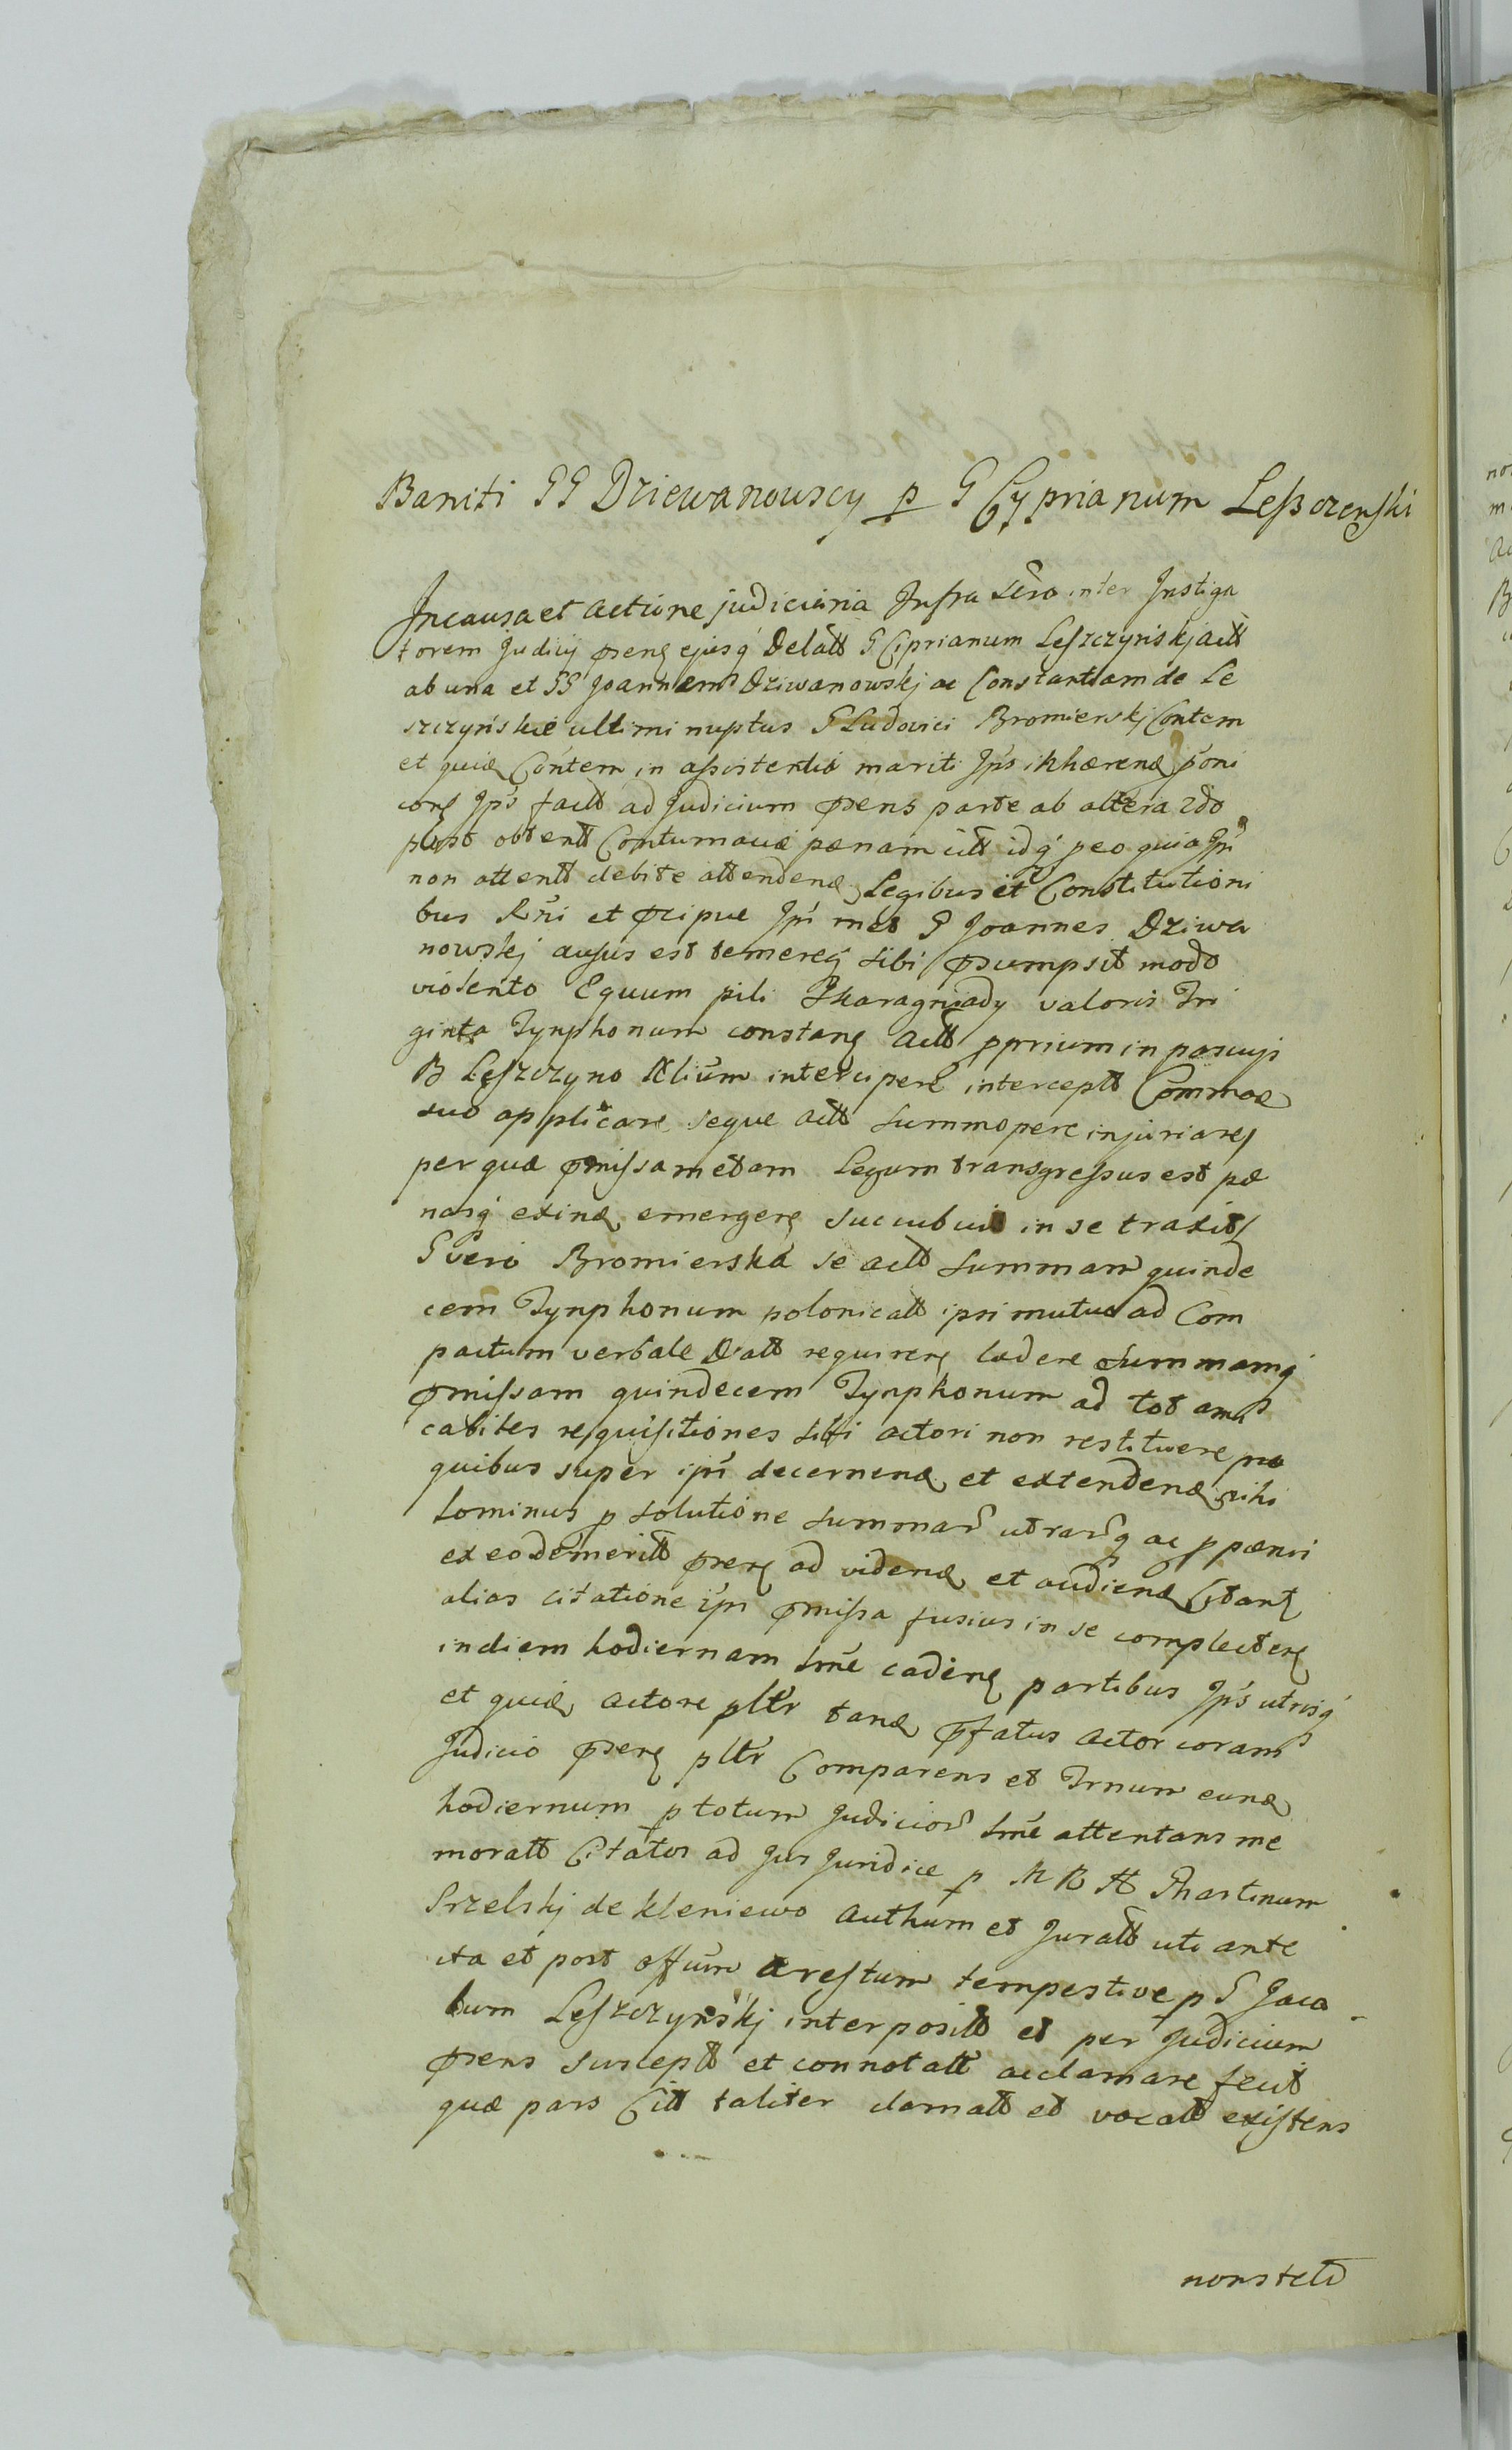 Baniti GG Dziewanowscy p G Cyprianum Leszczenski
In causa et actione judiciaria Infra Scro inter Instiga
torem Judicij psens ejusq Delatt G Ciprianum Leszczynskj actt
ab una et GG Joannem Dziwanowskj ac Constantiam de Le
szczynskie ultimi nuptus G Ludovici Bromierskj Contem
et quid Contem in assistentia mariti Ips inhærend
Ips factt ad Judicium psens parte ab altera
post obtentt Contumaciæ pænam idq peo quia Ipi
non attentt debite attendend Legibus et Constitutioni
bus Rni et pcipue Ipi met G Joannes Dziwa
nowskj ausus est temereq sibi psumpsit modo
violento Equum pili Skarogniady valoris Tri
ginta Tynphonum constang actt pprium in pascuis
B Leszczyno intercipere interceptt Commod
suo applicare seque actt summopere injuriare
per quæ pmissa metam Legum transgressus est pæ
nasq exind emergere succubuit in se traxit
G vero Bromierska se actt summam quinde
cem Tynphonum polonicatt ipsi mutuo ad Com
pactum verbale Datt requirere lædere Summamq
pmissam quindecem Tynphonum ad tot ami
cabiles requisitiones sibi actori non restituere pro
quibus super ipi decernend et extendend nihi
lominus p solutione summar utrarq ac p pænri
ex eo demeritt psens ad vidend et audiend Citant
alias citatione ipi pmissa fusius in se complectere
in diem hodiernam sme cadens partibus Ips utrisq
et quid actore pltr tand pfatus actor coram
Judicio psens pltr Comparens et Trnum eund
hodiernum p totum Judicior sme attentans me
moratt Citatos ad Jus Juridice p M R H Martinum
Srzelskj de Kleniewo Authum et Juratt uti ante
ita et post offum arestum tempestive p G Jaco
bum Leszczynskj interpositt et per Judicium
psens susceptt et connotatt acclamare fecit
quæ pars Citt taliter clamatt et vocatt existens
non stetit